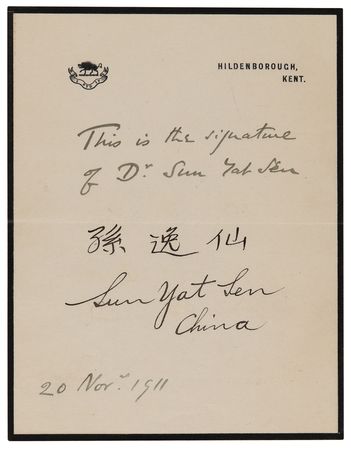 HILDENBOROUGH,
KENT.
This is the signature
of Dr. Sun Yat Sen
孫逸仙
Sun Yat Sen
China
20 Novr. 1911